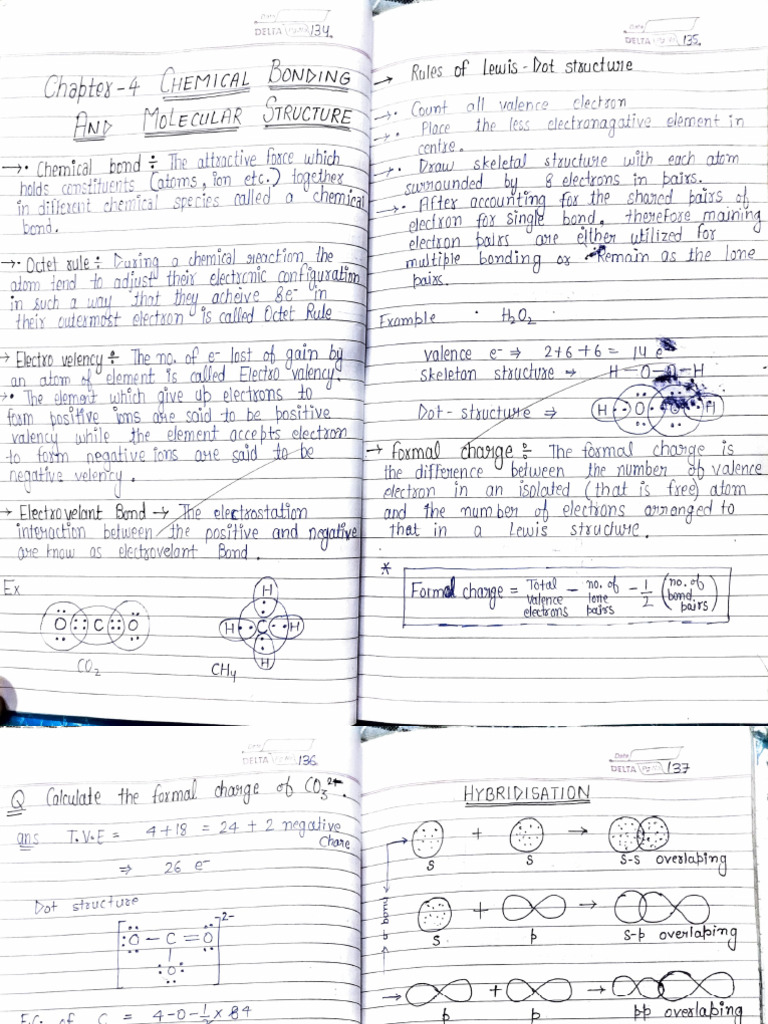 Date
DELTA Pg No. 134.
Chapter-4 CHEMICAL BONDING
AND MOLECULAR STRUCTURE
→ • Chemical bond ÷ The attractive force which
holds constituents (atoms, ion etc.) together
in different chemical species called a chemical
bond.
→ • Octet rule ÷ During a chemical reaction the
atom tend to adjust their electronic configuration
in such a way that they acheive 8e⁻ in
their outermost electron is called Octet Rule
→ Electro velency ÷ The no. of e⁻ lost of gain by
an atom of element is called Electro valency.
→• The element which give up electrons to
form positive ions are said to be positive
valency while the element accepts electron
to form negative ions are said to be
negative velency.
→ Electrovelant Bond → The electrostation
interaction between the positive and negative
are know as electrovelant Bond.
Ex
O C O
CO₂
H
H C H
H
CH₄
Date
DELTA Pg No. 135.
→ Rules of Lewis-Dot structure
→ • Count all valence electron
→ • Place the less electronagative element in
centre.
→ • Draw skeletal structure with each atom
surrounded by 8 electrons in pairs.
→ • After accounting for the shared pairs of
electron for single bond, therefore maining
electron pairs are either utilized for
multiple bonding or Remain as the lone
pairs.
Example • H₂O₂
valence e⁻ ⇒ 2+6+6 = 14 e⁻
skeleton structure → H-O-O-H
Dot-structure ⇒ H O O H
→ Formal charge ÷ The formal charge is
the difference between the number of valence
electron in an isolated (that is free) atom
and the number of electrons arranged to
that in a Lewis structure.
*
Formal charge = Total valence electrons − no. of lone pairs − 1/2 (no. of bond pairs)
Date
DELTA Pg No. 136
Q Calculate the formal charge of CO₃²⁻.
ans T.V.E = 4+18 = 24 + 2 negative
Chare
⇒ 26 e⁻
Dot structure
[:O – C = O]²⁻
:O:
F.C. of C = 4-0-1/2 x 84
Date
DELTA Pg No. 137
HYBRIDISATION
+ →
s s s-s overlaping
+ →
s p s-p overlaping
→ + →
p p pp overlaping